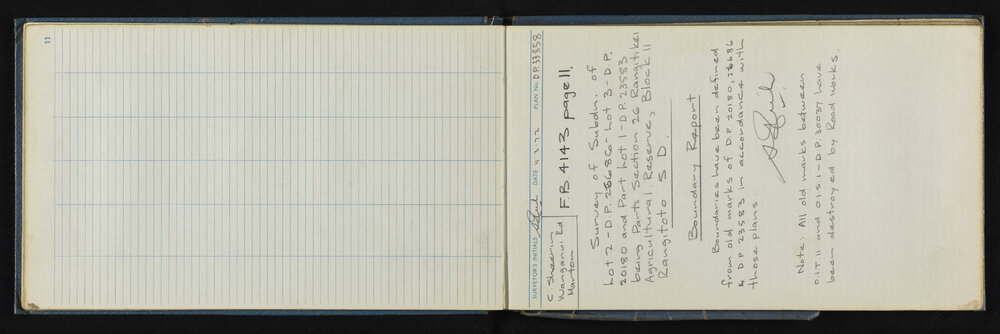 11
SURVEYOR'S INITIALS DATE 11.3.72 PLAN No. D.P. 33858
C. Sheerin
Wanganui Rd
Marton
FB 4143 page 11.
Survey of Subdn. of
Lot 2 - D.P. 28686 - Lot 3 - D.P.
20180 and Part Lot 1 - D.P. 23583
being Parts Section 26 Rangitikei
Agricultural Reserve, Block II
Rangitoto S.D.
Boundary Report
Boundaries have been defined
from old marks of D.P. 20180, 28686
& D.P. 23583 in accordance with
those plans.
Note: All old marks between
O.I.T. 11 and O.I.S. 1 - D.P. 30037 have
been destroyed by Road works.